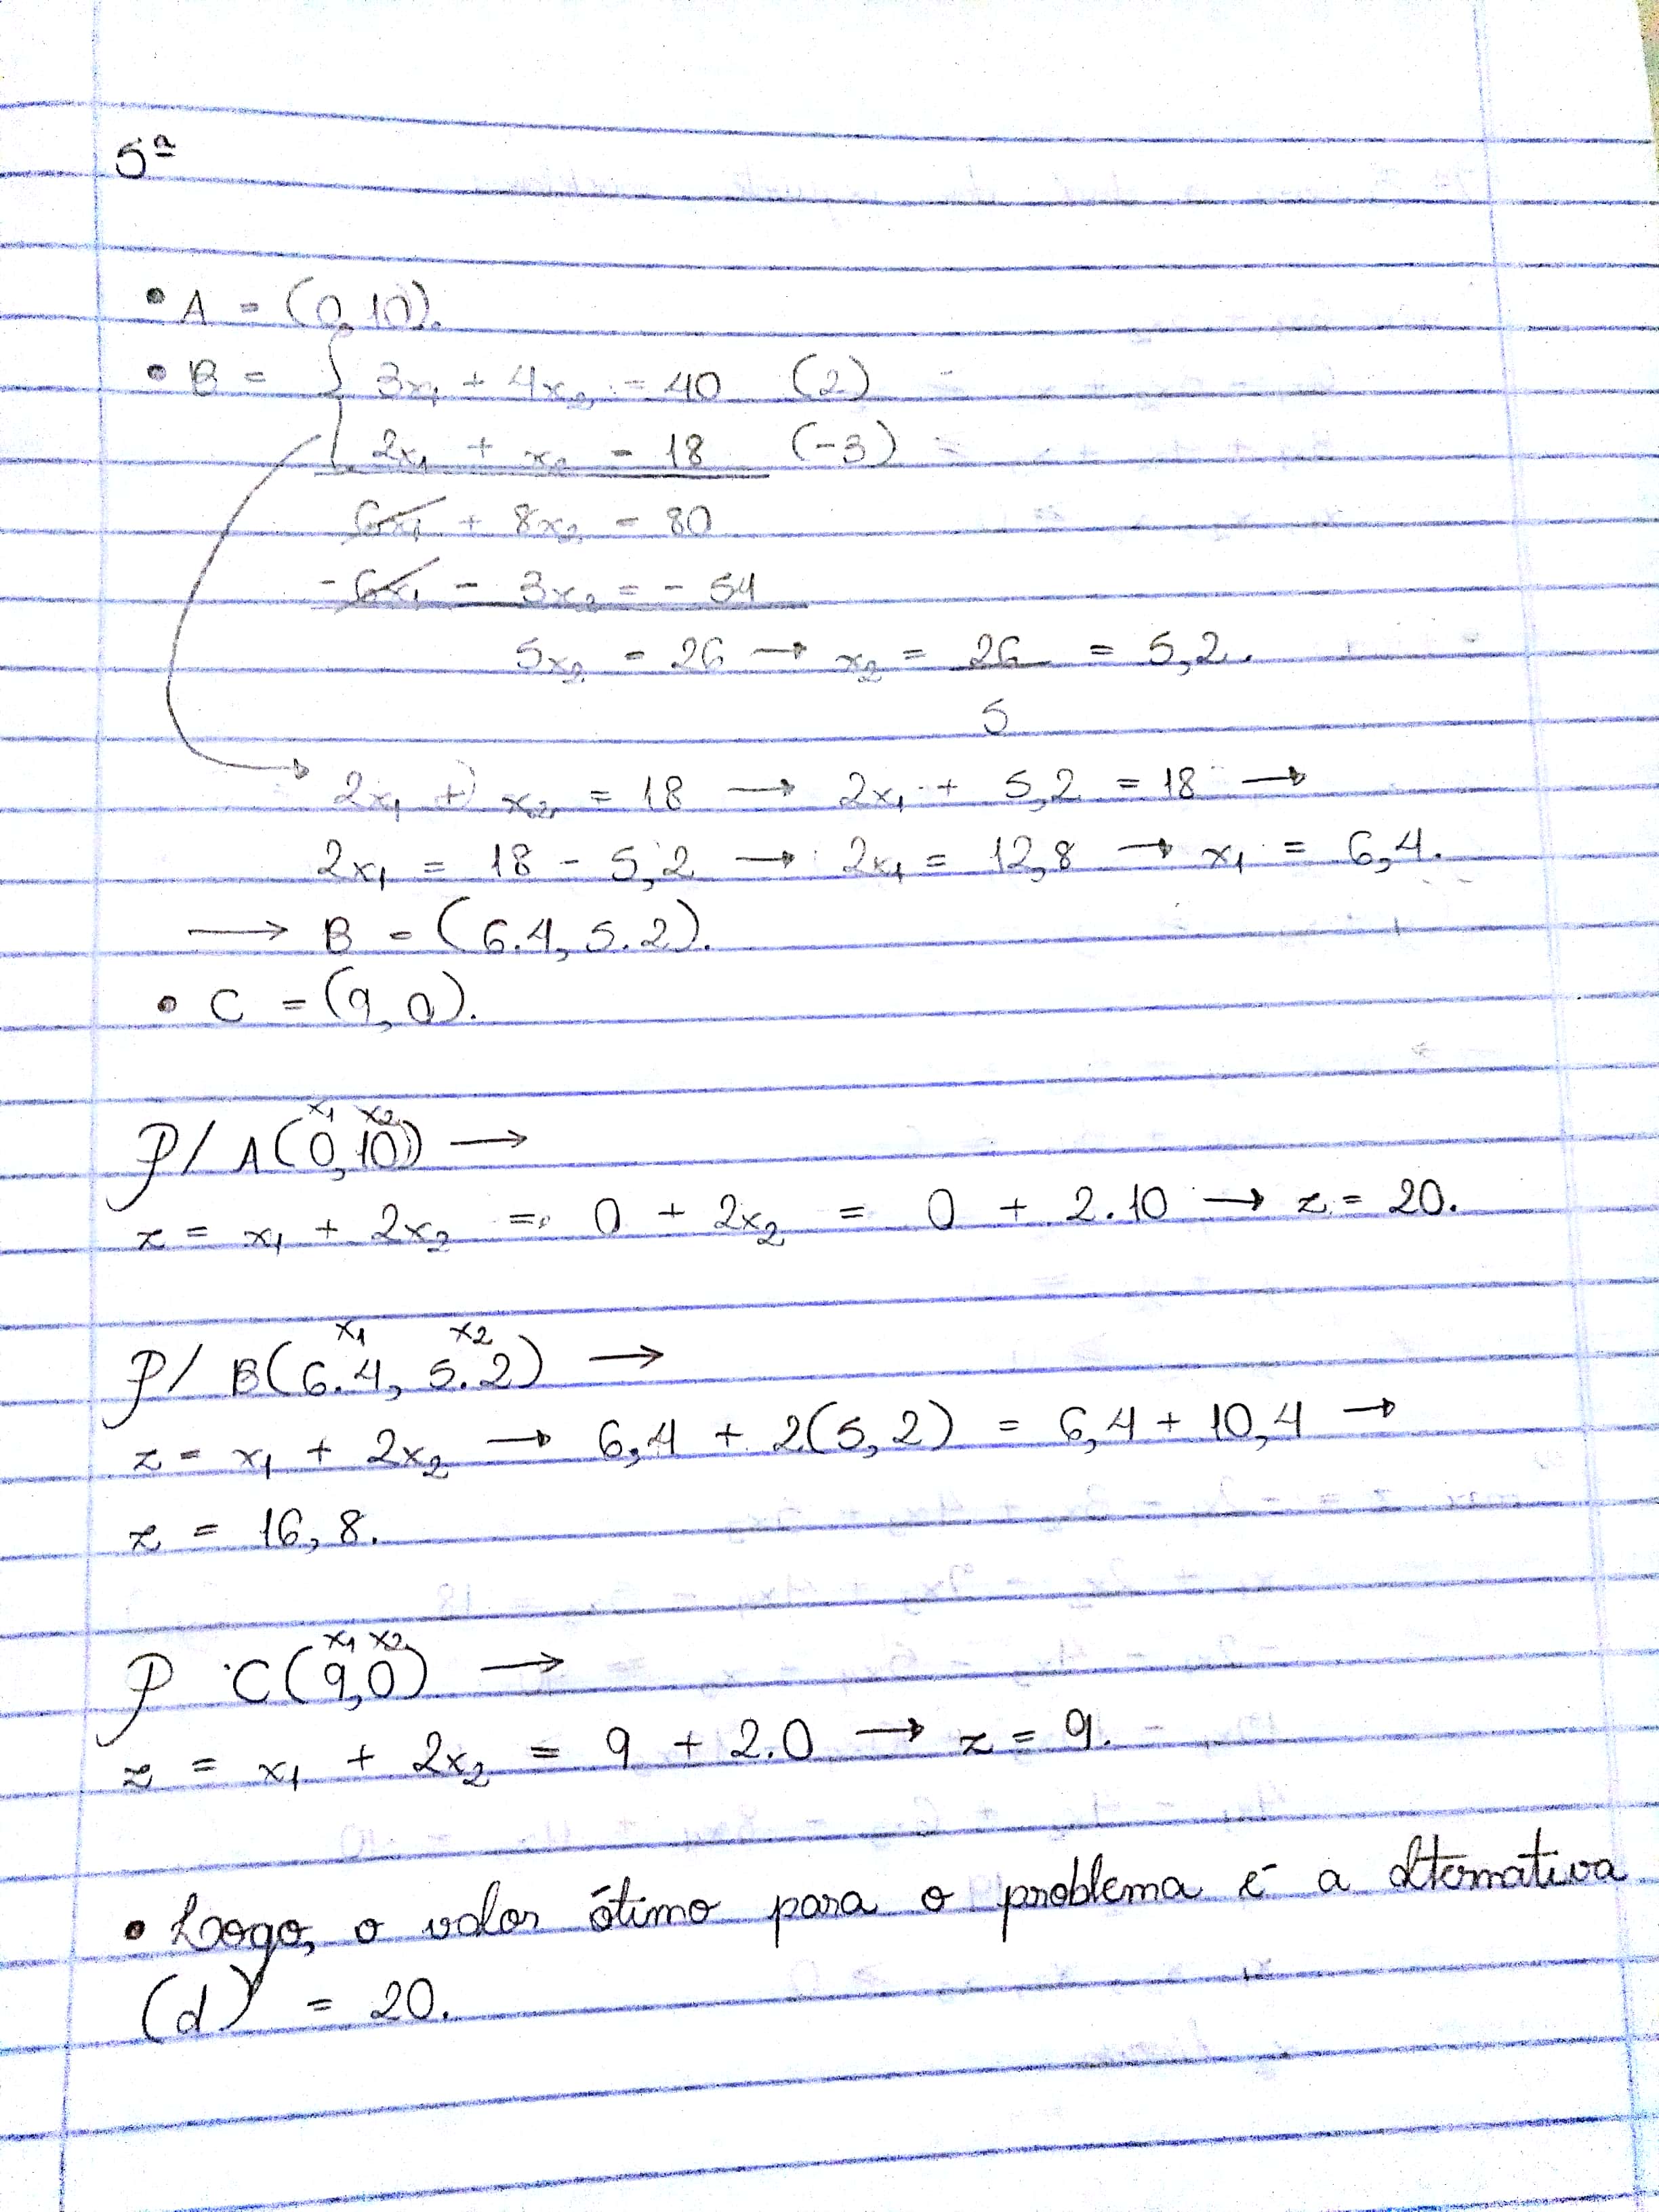 5ª
• A = (0, 10).
• B = { 3x₁ + 4x₂ = 40 (2)
2x₁ + x₂ = 18 (-3)
6x₁ + 8x₂ = 80
- 6x₁ - 3x₂ = - 54
5x₂ = 26 → x₂ = 26 = 5,2.
5
2x₁ + x₂ = 18 → 2x₁ + 5,2 = 18 →
2x₁ = 18 - 5,2 → 2x₁ = 12,8 → x₁ = 6,4.
→ B = (6.4, 5.2).
• C = (9, 0).
x₁ x₂
P/ A(0,10) →
z = x₁ + 2x₂ = 0 + 2x₂ = 0 + 2.10 → z = 20.
x₁ x₂
P/ B(6.4, 5.2) →
z = x₁ + 2x₂ → 6,4 + 2(5,2) = 6,4 + 10,4 →
z = 16,8.
x₁ x₂
P C(9,0) →
z = x₁ + 2x₂ = 9 + 2.0 → z = 9.
• Logo, o valor ótimo para o problema é a alternativa
(d) = 20.